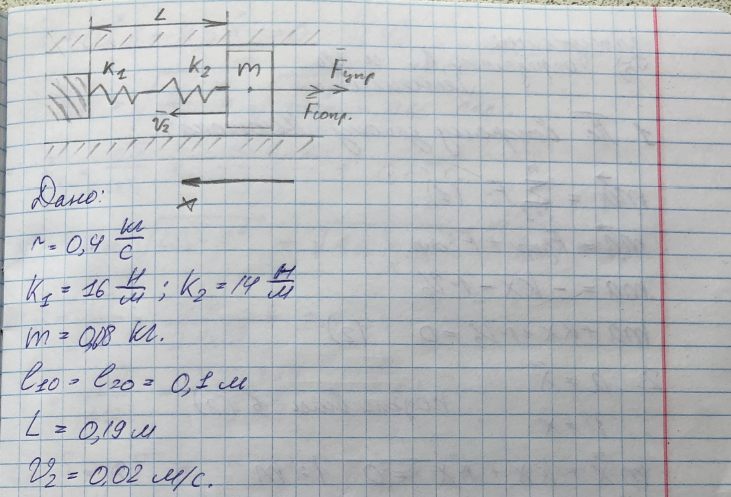 L
K₁ K₂ m F̄упр
V̄₂ F̄сопр.
x
Дано:
r = 0,4 кг/с
K₁ = 16 Н/м ; K₂ = 14 Н/м
m = 0,08 кг.
l₁₀ = l₂₀ = 0,1 м
L = 0,19 м
V₂ = 0,02 м/с.